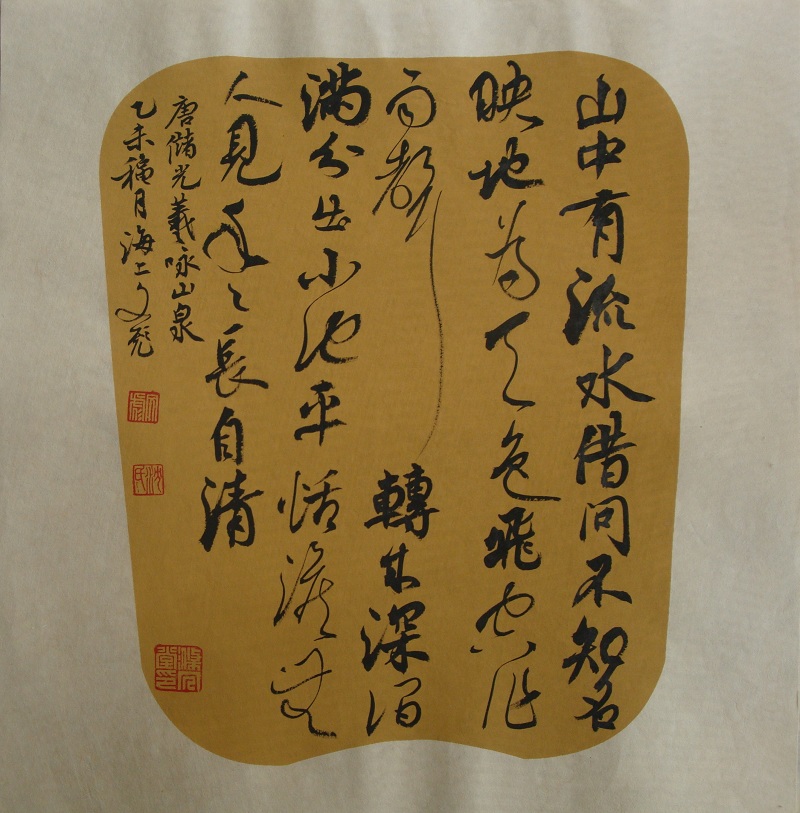 山中有流水借问不知名
映地为天色飛空作
雨聲轉来深涧
满分出小池平恬澹無
人見年々長自清
唐储光羲咏山泉
乙未月海上文
沈氏